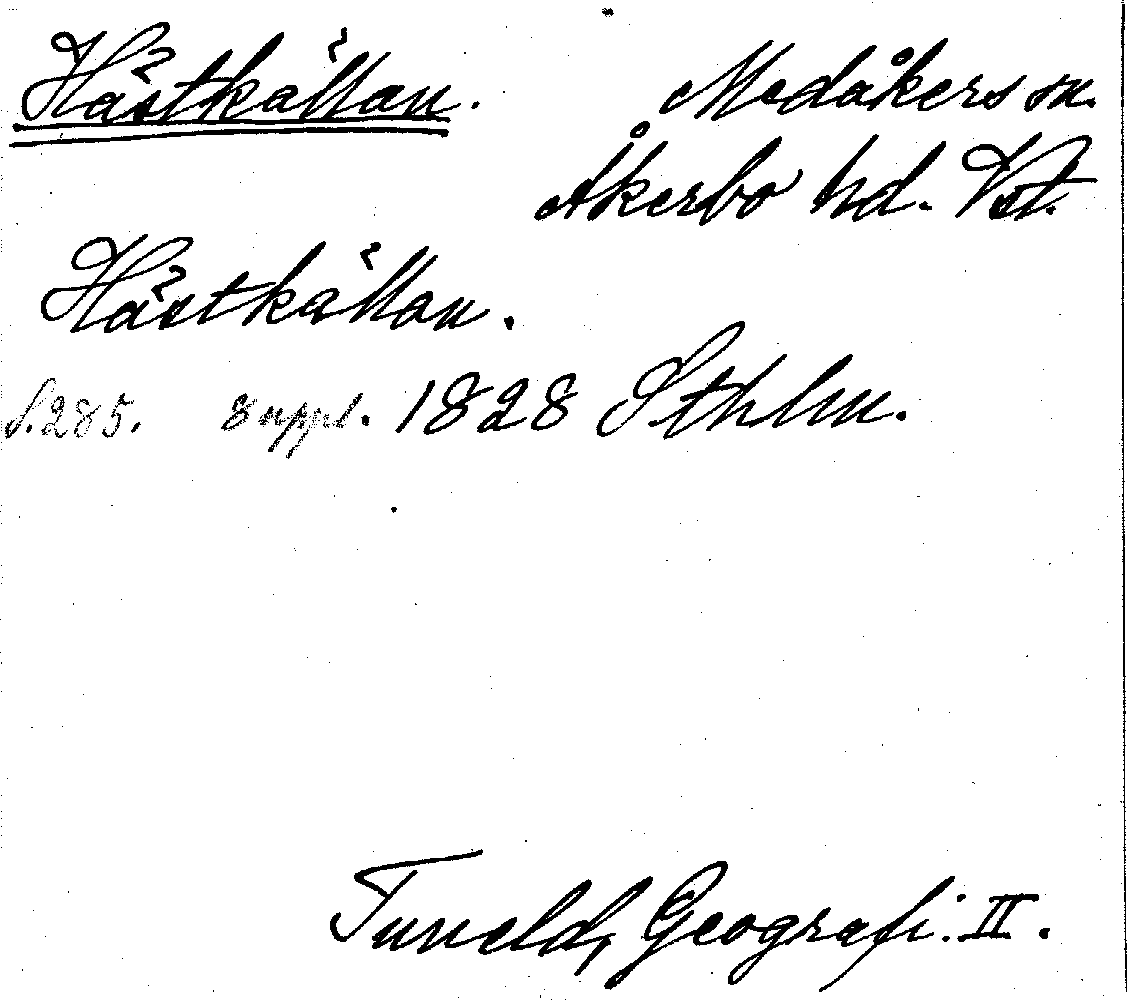 Hästkällan. Medåkers sn.
Åkerbo hd. Vst.
Hästkällan.
S. 285. suppl. 1828 Sthlm.
Tuneld, Geografi. II.